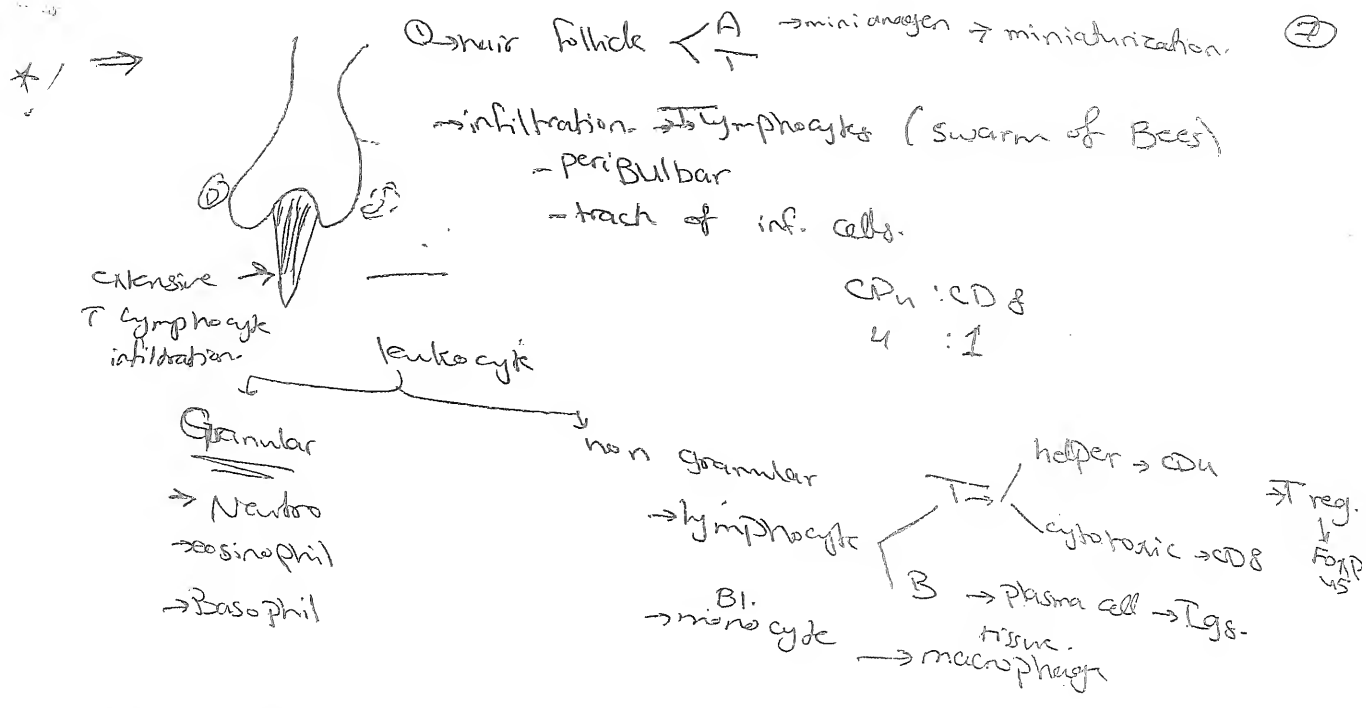 ① → hair follicle < A → mini anagen → miniaturization. ⑦
T
→ infiltration → T lymphocytes (swarm of Bees)
- peri Bulbar
- track of inf. cells.
extensive →
T lymphocyte
infiltration.
CD4 : CD8
4 : 1
leukocyte
Granular
→ Neutro
→ eosinophil
→ Basophil
non granular
→ lymphocyte
T → helper → CD4 → T reg.
cytotoxic → CD8
FoxP
B → plasma cell → Igs.
Bl.
→ monocyte
tissue.
→ macrophage